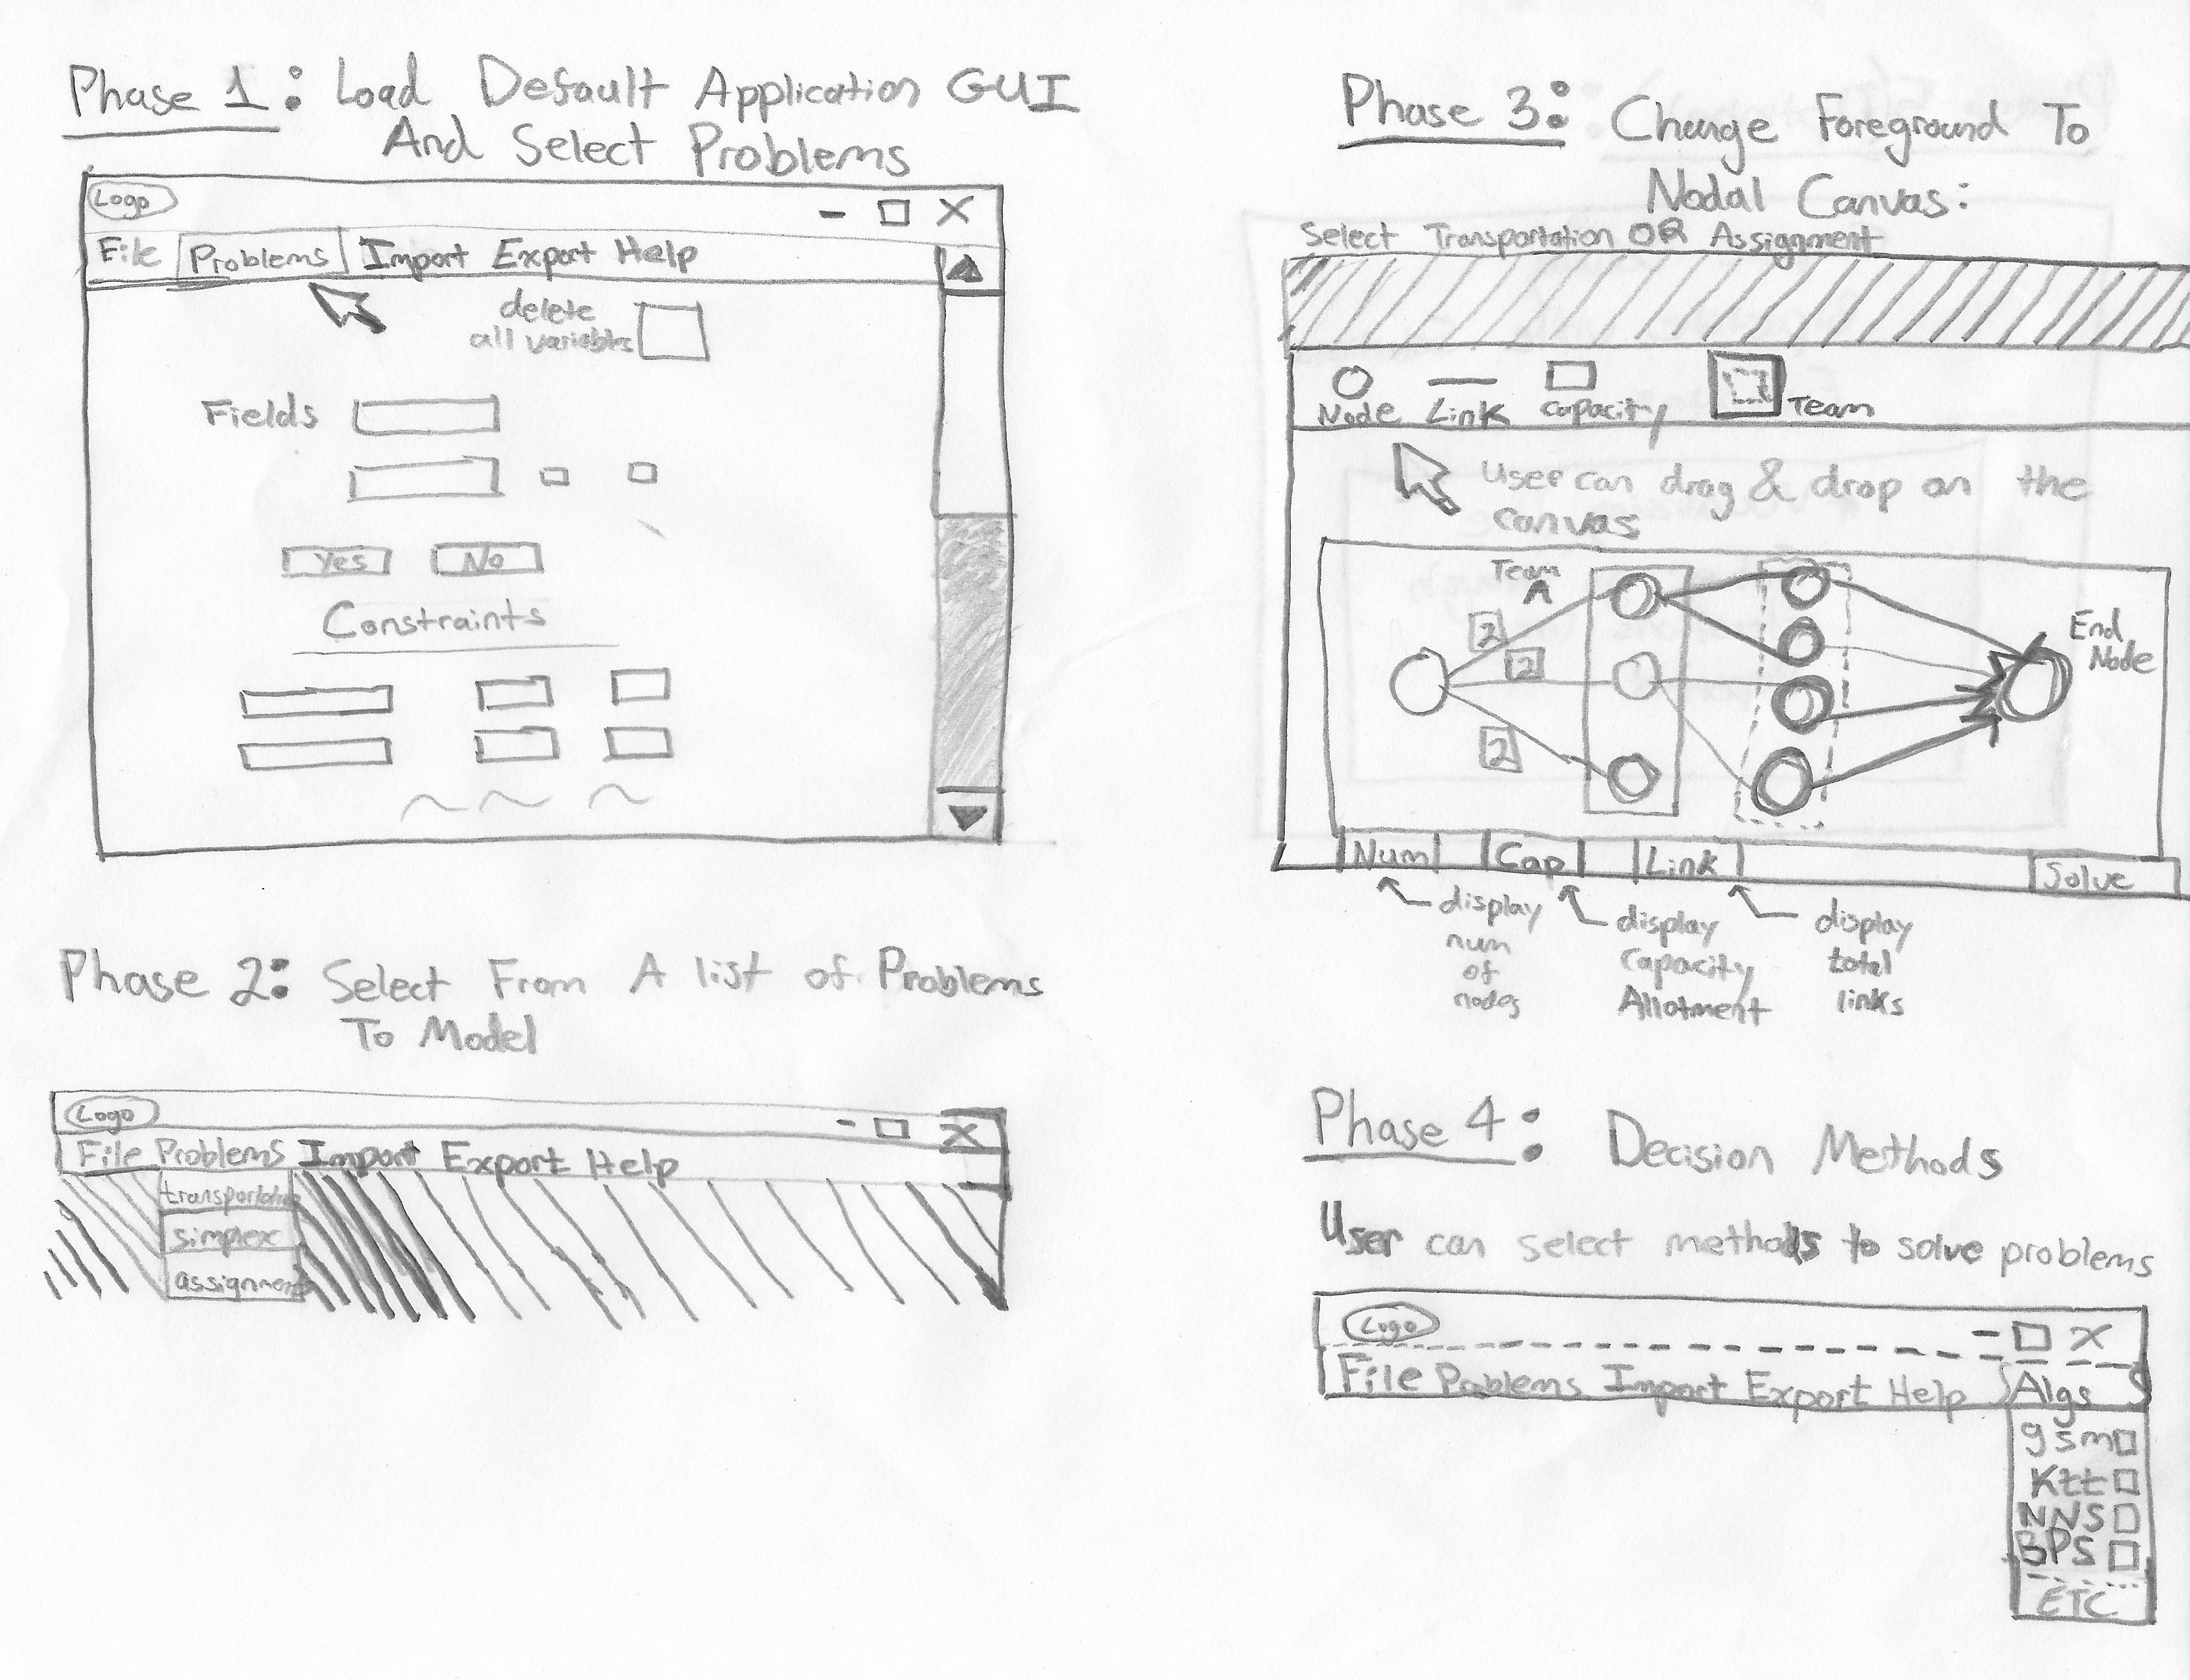 Phase 1: Load Default Application GUI
And Select Problems
Logo
File Problems Import Export Help
delete
all variables
Fields
Yes No
Constraints
Phase 2: Select From A list of Problems
To Model
Logo
File Problems Import Export Help
simplex
assignment
Phase 3: Change Foreground To
Nodal Canvas:
Select Transportation OR Assignment
Node Link Capacity Team
User can drag & drop on the
canvas
Team
A
2
2
2
End
Node
Num Cap Link Solve
display
num
of
nodes
display
Capacity
Allotment
display
total
links
Phase 4: Decision Methods
User can select methods to solve problems
Logo
File Problems Import Export Help Algs
gsm
Ktt
NNS
BPS
ETC